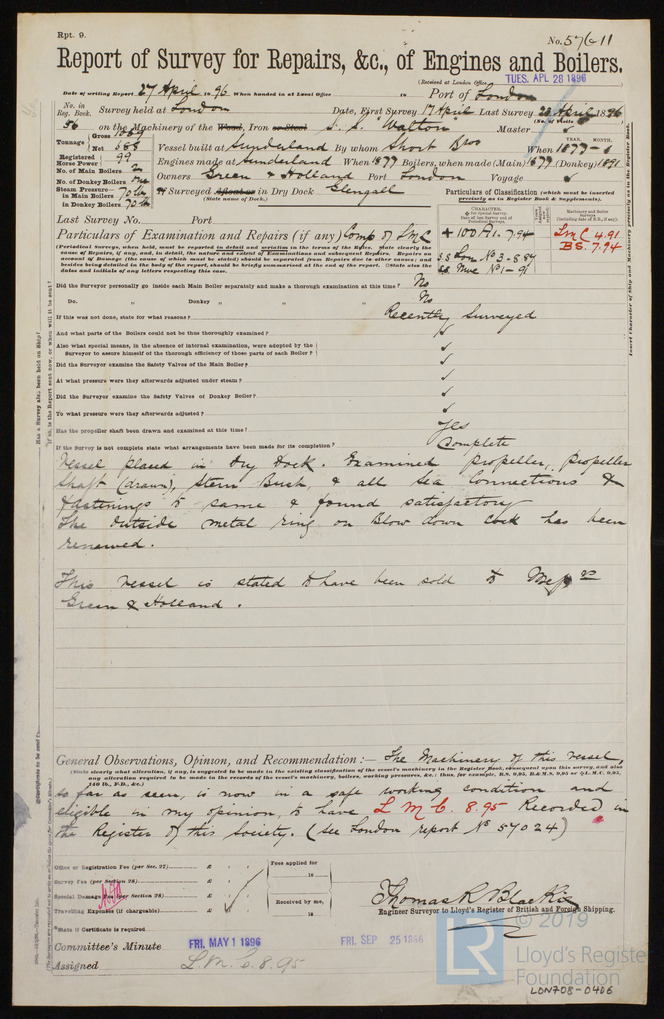 Rpt. 9.
No. 57611
Report of Survey for Repairs, &c., of Engines and Boilers.
(Received at London Office TUES. APL 28 1896
Date of writing Report 27 April 1896 When handed in at Local Office 18 Port of London
No. in Reg. Book. Survey held at London Date, First Survey 17 April Last Survey 23 April 1896
(No. of Visits
56 on the Machinery of the Wood, Iron or Steel S.S. "Walton" Master
Tonnage Gross
Net 688 Vessel built at Sunderland By whom Short Bros When 1877-6
YEAR. MONTH.
Registered Horse Power 99 Engines made at Sunderland When 1877 Boilers, when made (Main) 1877 (Donkey) 1891
No. of Main Boilers 2 Owners Green & Holland Port London Voyage
No. of Donkey Boilers
Steam Pressure in Main Boilers 70 lb If Surveyed Afloat or in Dry Dock Glengall
(State name of Dock.)
in Donkey Boilers 70 lb
Particulars of Classification (which must be inserted precisely as in Register Book & Supplements).
CHARACTER.
Machinery and Boiler Surveys
+ 100 A1. 7.94
S.S. Lon No 3-8.87
S.S. Mwe No 1-91
LMC 4.91
BS. 7.94
Last Survey No. Port
Particulars of Examination and Repairs (if any) Comp of LMC
(Periodical Surveys, when held, must be reported in detail and seriatim in the terms of the Rules. State clearly the
cause of Repairs, if any, and, in detail, the nature and extent of Examinations and subsequent Repairs. Repairs on
account of Damage (the cause of which must be stated) should be separated from Repairs due to other causes; and
besides being detailed in the body of the report, should be briefly summarised at the end of the report. State also the
dates and initials of any letters respecting this case.
Did the Surveyor personally go inside each Main Boiler separately and make a thorough examination at this time? No
Do. Donkey " " " No
If this was not done, state for what reasons? Recently Surveyed
And what parts of the Boilers could not be thus thoroughly examined?
Also what special means, in the absence of internal examination, were adopted by the
Surveyor to assure himself of the thorough efficiency of those parts of each Boiler?
Did the Surveyor examine the Safety Valves of the Main Boiler?
At what pressure were they afterwards adjusted under steam?
Did the Surveyor examine the Safety Valves of Donkey Boiler?
To what pressure were they afterwards adjusted?
Has the propeller shaft been drawn and examined at this time? Yes
If the Survey is not complete state what arrangements have been made for its completion? Complete
Vessel placed in Dry Dock. Examined propeller, propeller
shaft (drawn), Stern Bush, & all sea connections &
fastenings to same & found satisfactory
The outside metal ring on Blow down Cock has been
renewed.
This vessel is stated to have been sold to Messrs
Green & Holland.
General Observations, Opinion, and Recommendation:— The Machinery of this vessel,
(State clearly what alteration, if any, is suggested to be made in the existing classification of the vessel's machinery in the Register Book, consequent upon this survey, and also
any alteration required to be made in the records of the vessel's machinery, boilers, working pressures, &c.: thus, for example, B.S. 9.95, B.&M.S. 9.95 or L.M.C. 9.95,
140 lb., F.D., &c.)
so far as seen, is now in a safe working condition and
eligible in my opinion, to have L M C. 8.95 Recorded in
the Register of this Society. (See London report No 57024)
Office or Registration Fee (per Sec. 27) £
Survey Fee (per Section 28) £
Special Damage Fee (per Section 28) £
Travelling Expenses (if chargeable) £
Fees applied for
18
Received by me,
18
State if Certificate is required
Thomas R Blackie
Engineer Surveyor to Lloyd's Register of British and Foreign Shipping.
Committee's Minute FRI. MAY 1 1896 FRI. SEP 25 1896
Assigned L.M.C. 8.95
© 2019
LR
Lloyd's Register
Foundation
LON708-0406